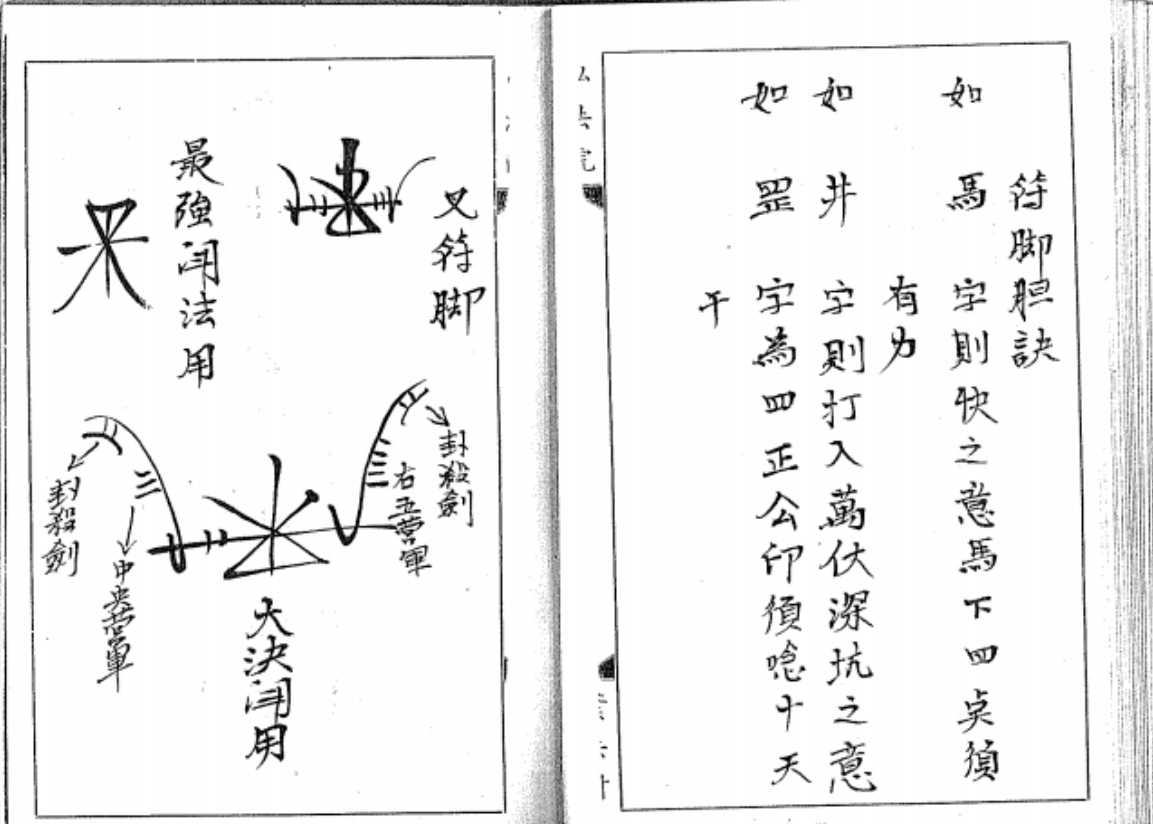 符脚胆訣
如馬字則快之意馬下四点須
有力
如井字則打入萬伏深坑之意
如罡字為四正公印須唸十天
干
又符脚
最強閗法用
封殺劍
右五营軍
大決閗用
中央营軍
封殺劍